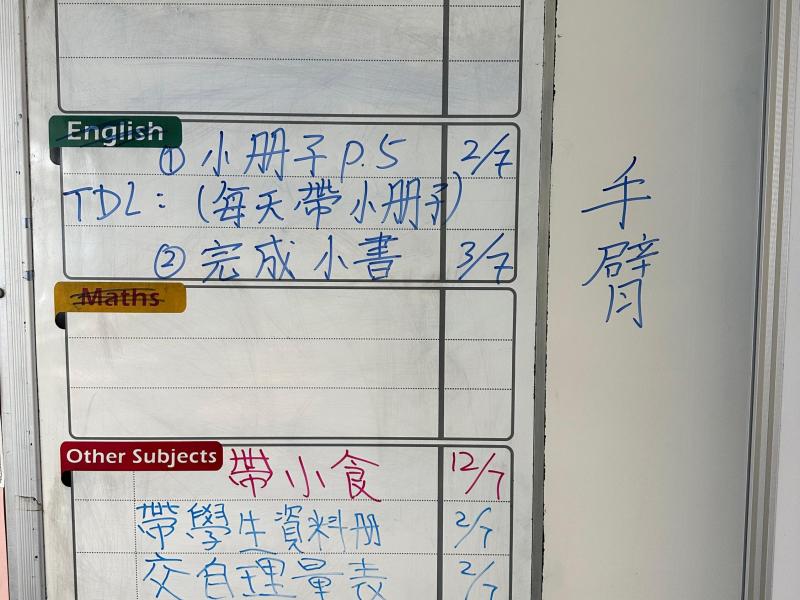 English
① 小册子 P.5 2/7
TDL: (每天帶小册子)
② 完成小書 3/7
Maths
Other Subjects 帶小食 12/7
帶學生資料册 2/7
交自理量表 2/7
手臂